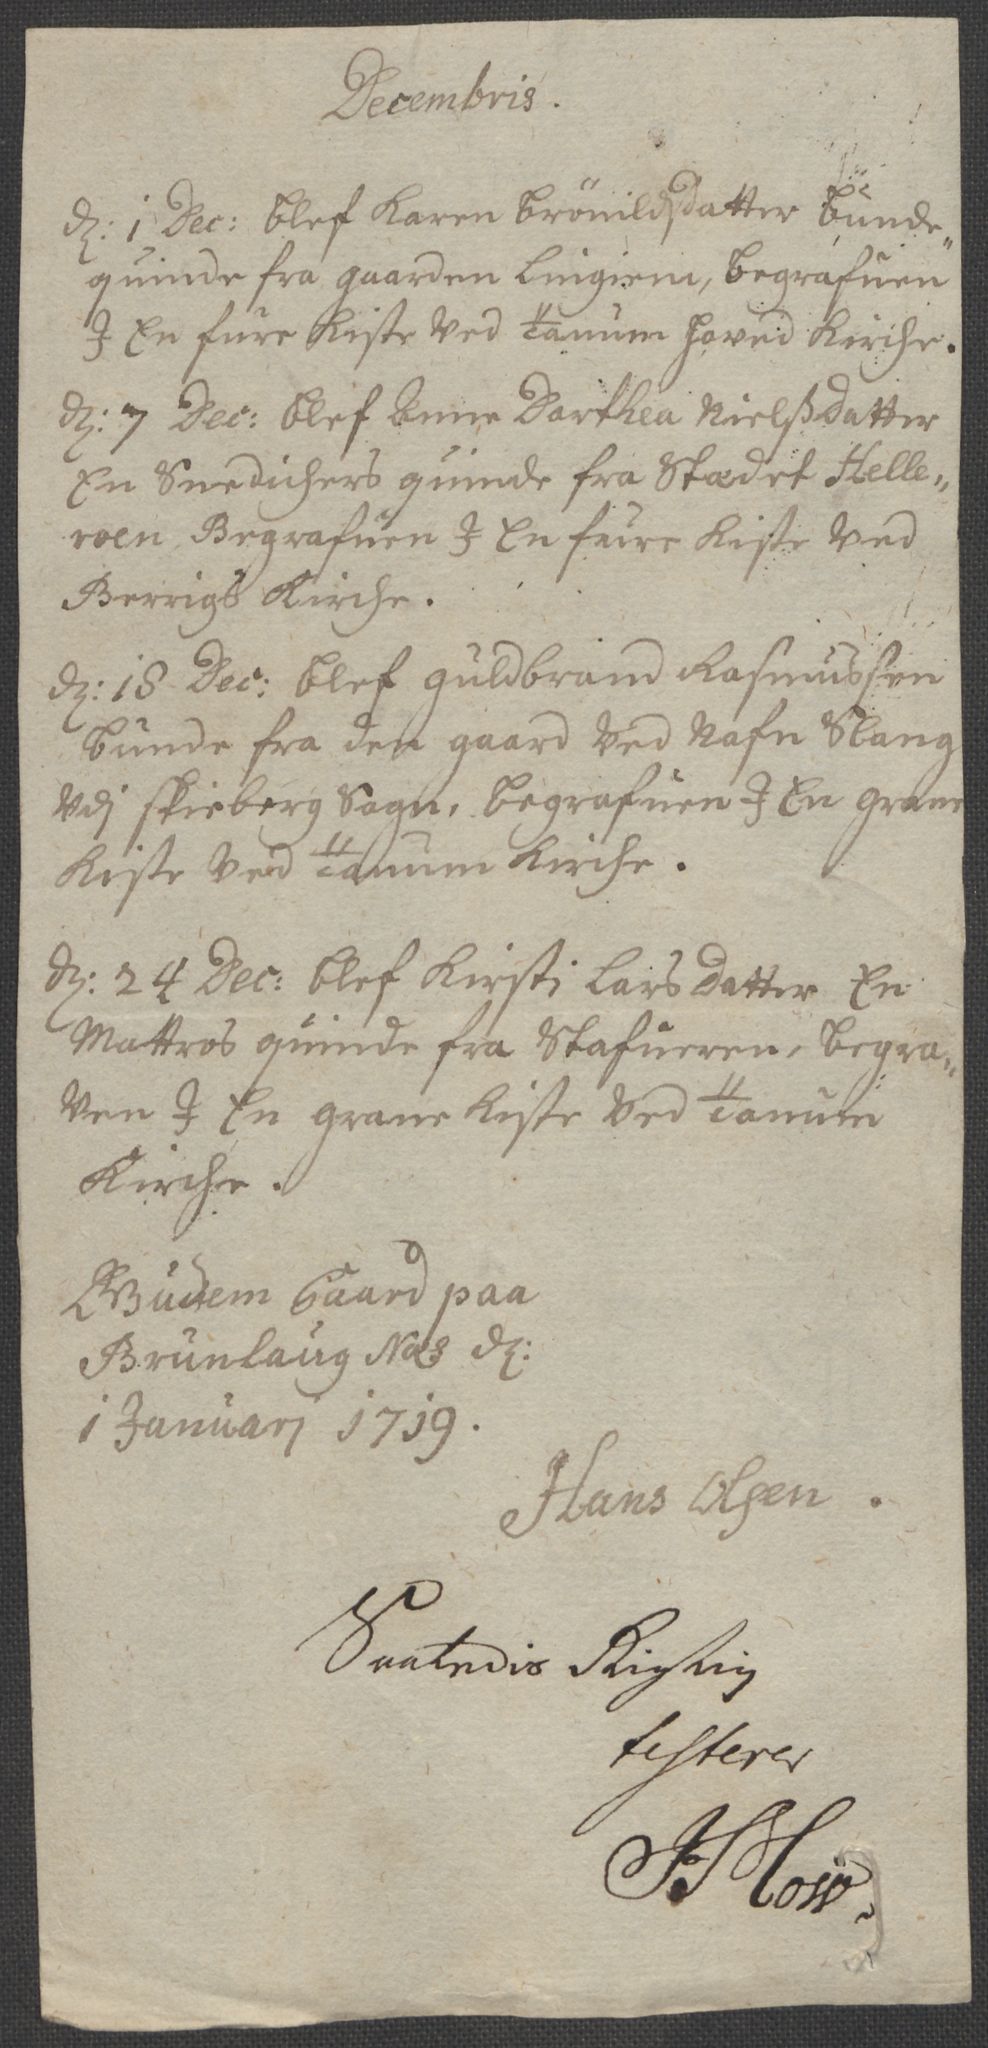 Decembris.
dẜ: 1 Dec: blef Karen brönildsdatter bunde„
quinde fra gaarden Lingiem, begrafuen
J En fure Kiste ved Tanum hoved Kirche.
dẜ: 7 Dec: blef Anne Dorthea Nielsdatter
En Snedichers quinde fra Stædet Helle„
roen Begrafuen J En fuire Kiste ved
Berrigs Kirche.
dẜ: 18 Dec: blef guldbrand Rasmussen
bunde fra den gaard ved Nafn Slang
vdj skieberg Sogn, begrafuen J En grane
Kiste ved Tanum Kirche.
dẜ: 24 Dec: blef Kirsti Lars datter En
Mattros quinde fra Stafueren, begra„
ven J En grane Kiste ved Tanum
Kirche.
Gaard paa
Brunlaug Næs dẜ:
1 Januarj 1719.
Hans Olsen.
Saaledis Rigtig
testerer